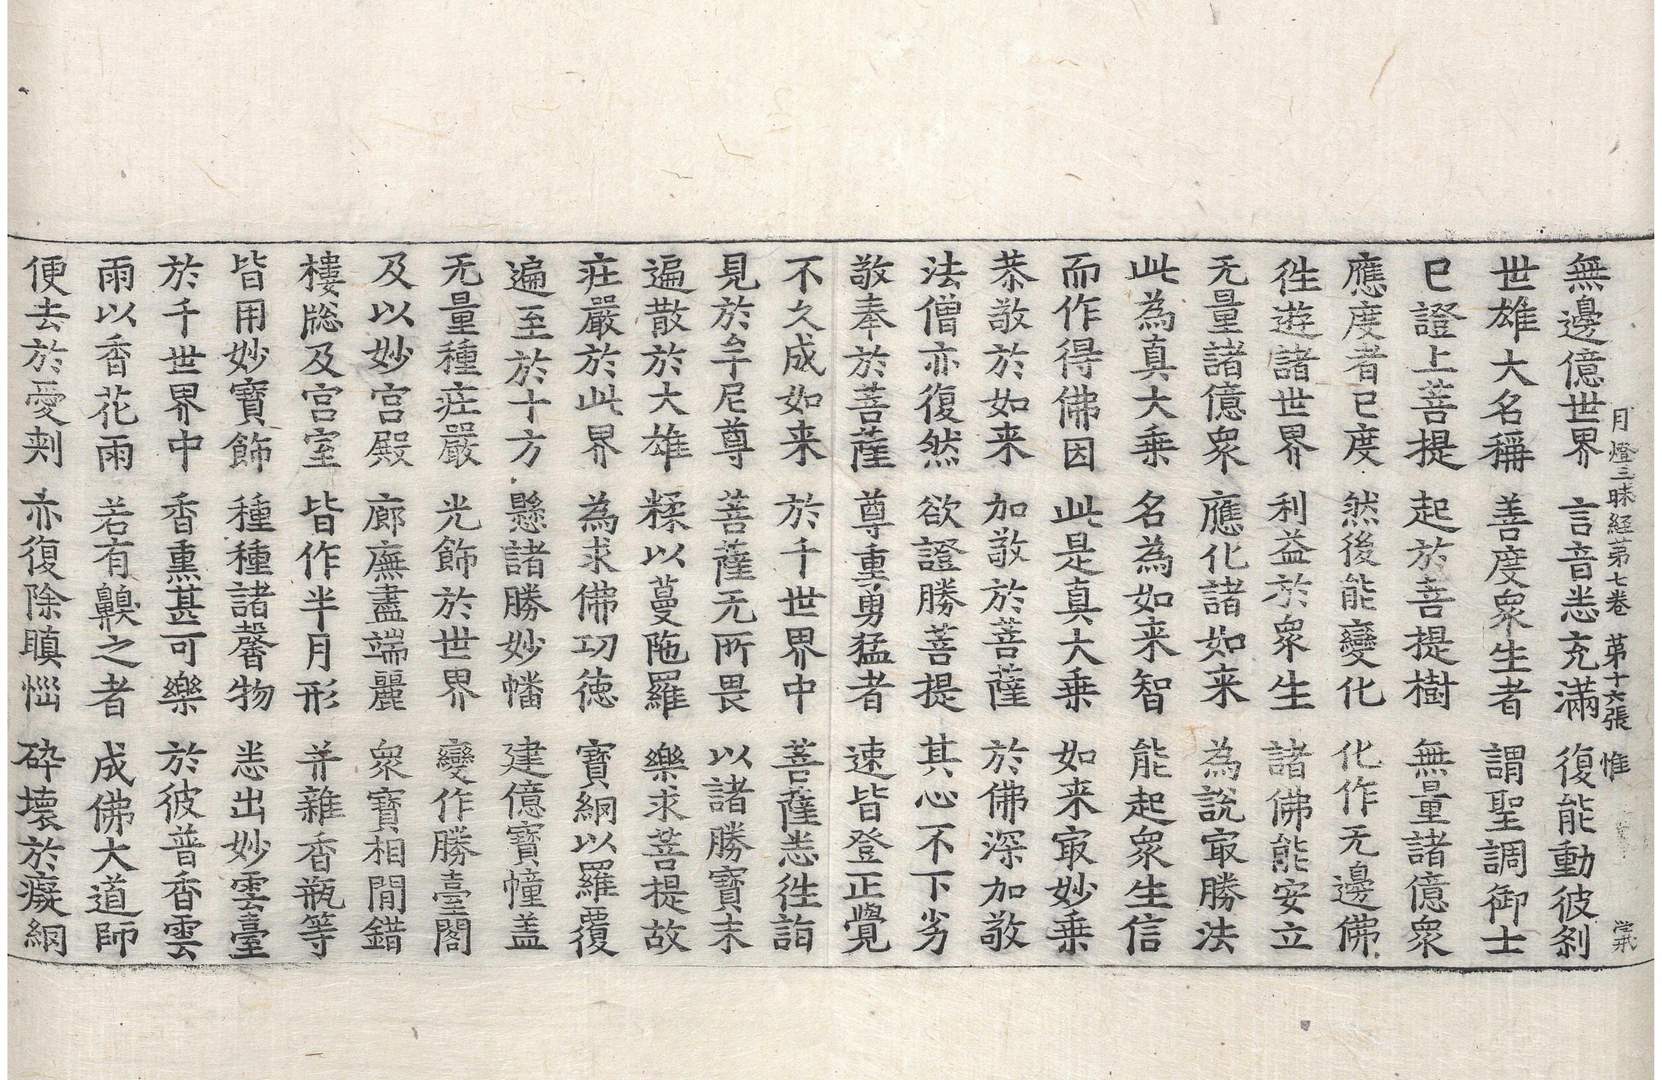 月燈三昧経苐七卷　苐十六張　惟
無邊億世界　言音悉充滿　復能動彼剎
世雄大名稱　善度衆生者　謂聖調御士
已證上菩提　起於菩提樹　無量諸億衆
應度者已度　然後能變化　化作无邊佛
徃遊諸世界　利益於衆生　諸佛能安立
无量諸億衆　應化諸如来　為說㝡勝法
此為真大乗　名為如来智　能起衆生信
而作得佛因　此是真大乗　如来㝡妙乗
恭敬於如来　加敬於菩薩　於佛深加敬
法僧亦復然　欲證勝菩提　其心不下劣
敬奉於菩薩　尊重勇猛者　速皆登正覺
不久成如来　於千世界中　菩薩悉徃詣
見於牟尼尊　菩薩无所畏　以諸勝寶末
遍散於大雄　糅以蔓陁羅　樂求菩提故
莊嚴於此界　為求佛功徳　寶網以羅覆
遍至於十方　懸諸勝妙幡　建億寶幢盖
无量種莊嚴　光飾於世界　變作勝臺閣
及以妙宫殿　廊廡盡端麗　衆寶相間錯
樓牎及宫室　皆作半月形　并雜香瓶等
皆用妙寶飾　種種諸馨物　悉出妙雲臺
於千世界中　香熏甚可樂　於彼普香雲
雨以香花雨　若有齅之者　成佛大道師
便去於愛刾　亦復除瞋惱　碎壞於癡網